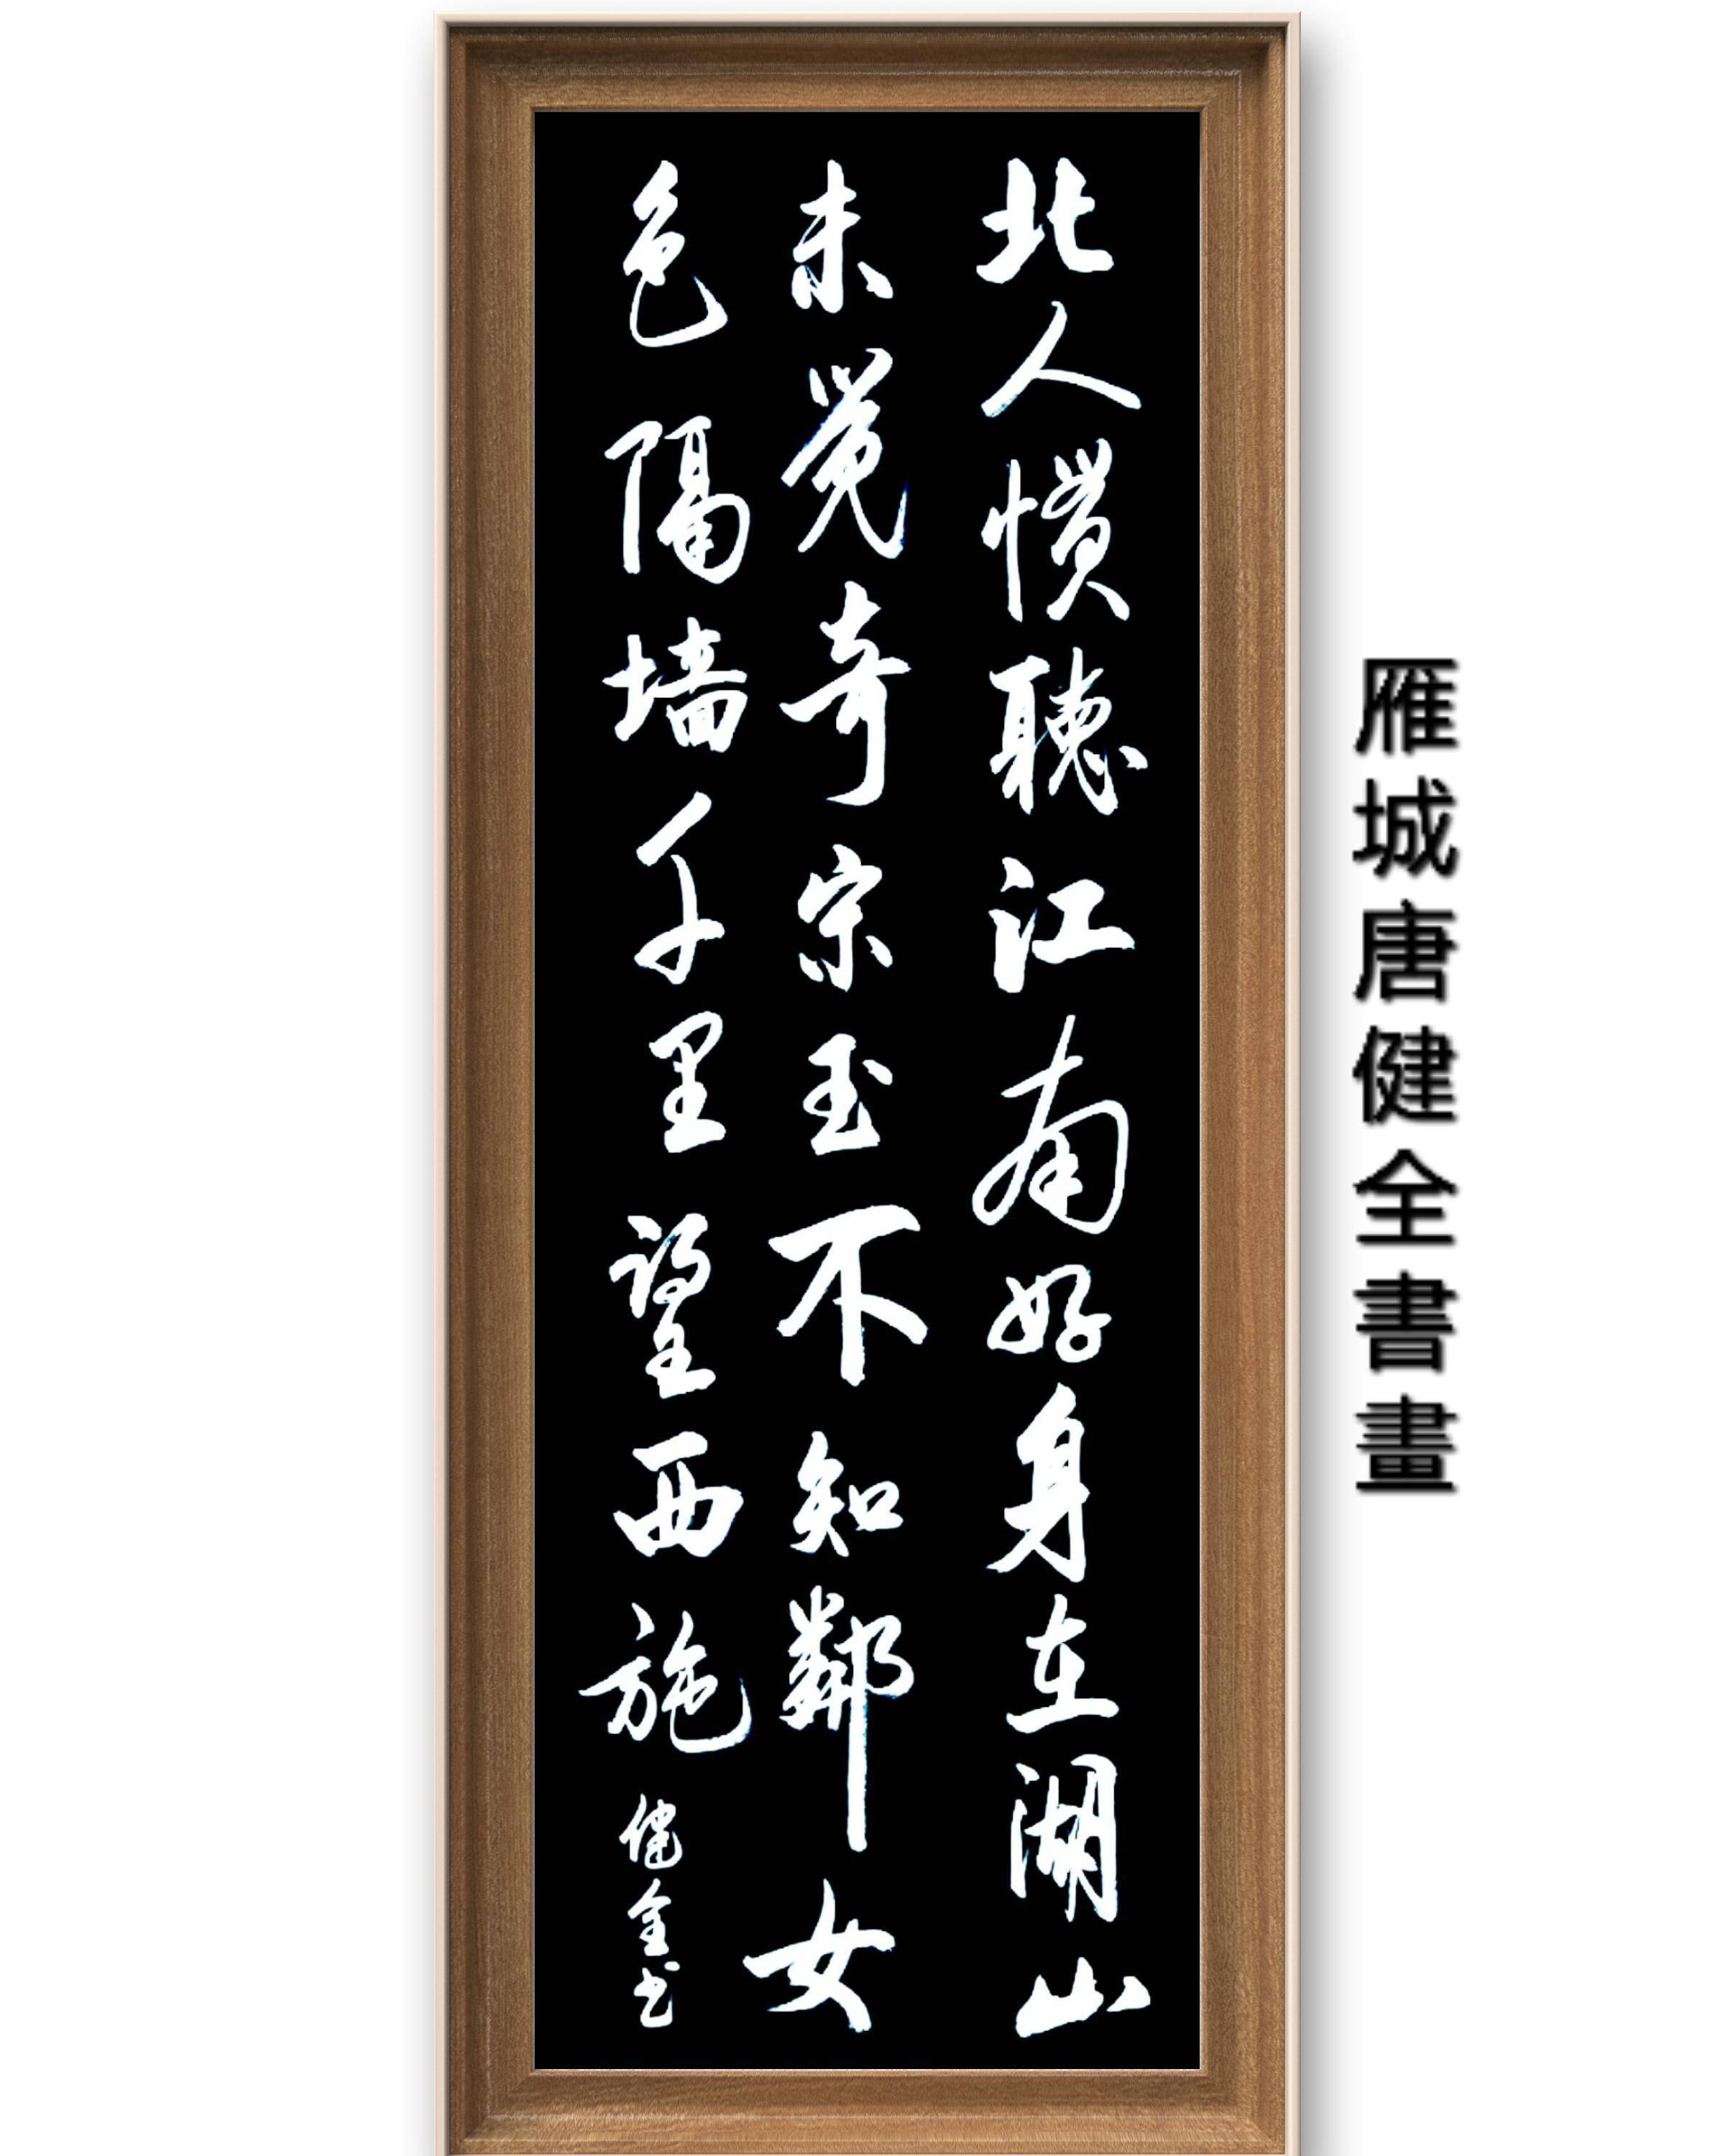 北人惯聽江南好身在湖山
未觉奇宗玉不知鄰女
色隔墙千里望西施
健全书
雁城唐健全書畫